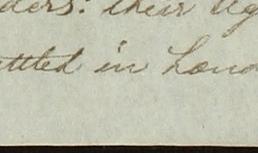 ders: their ag
ettled in Lond